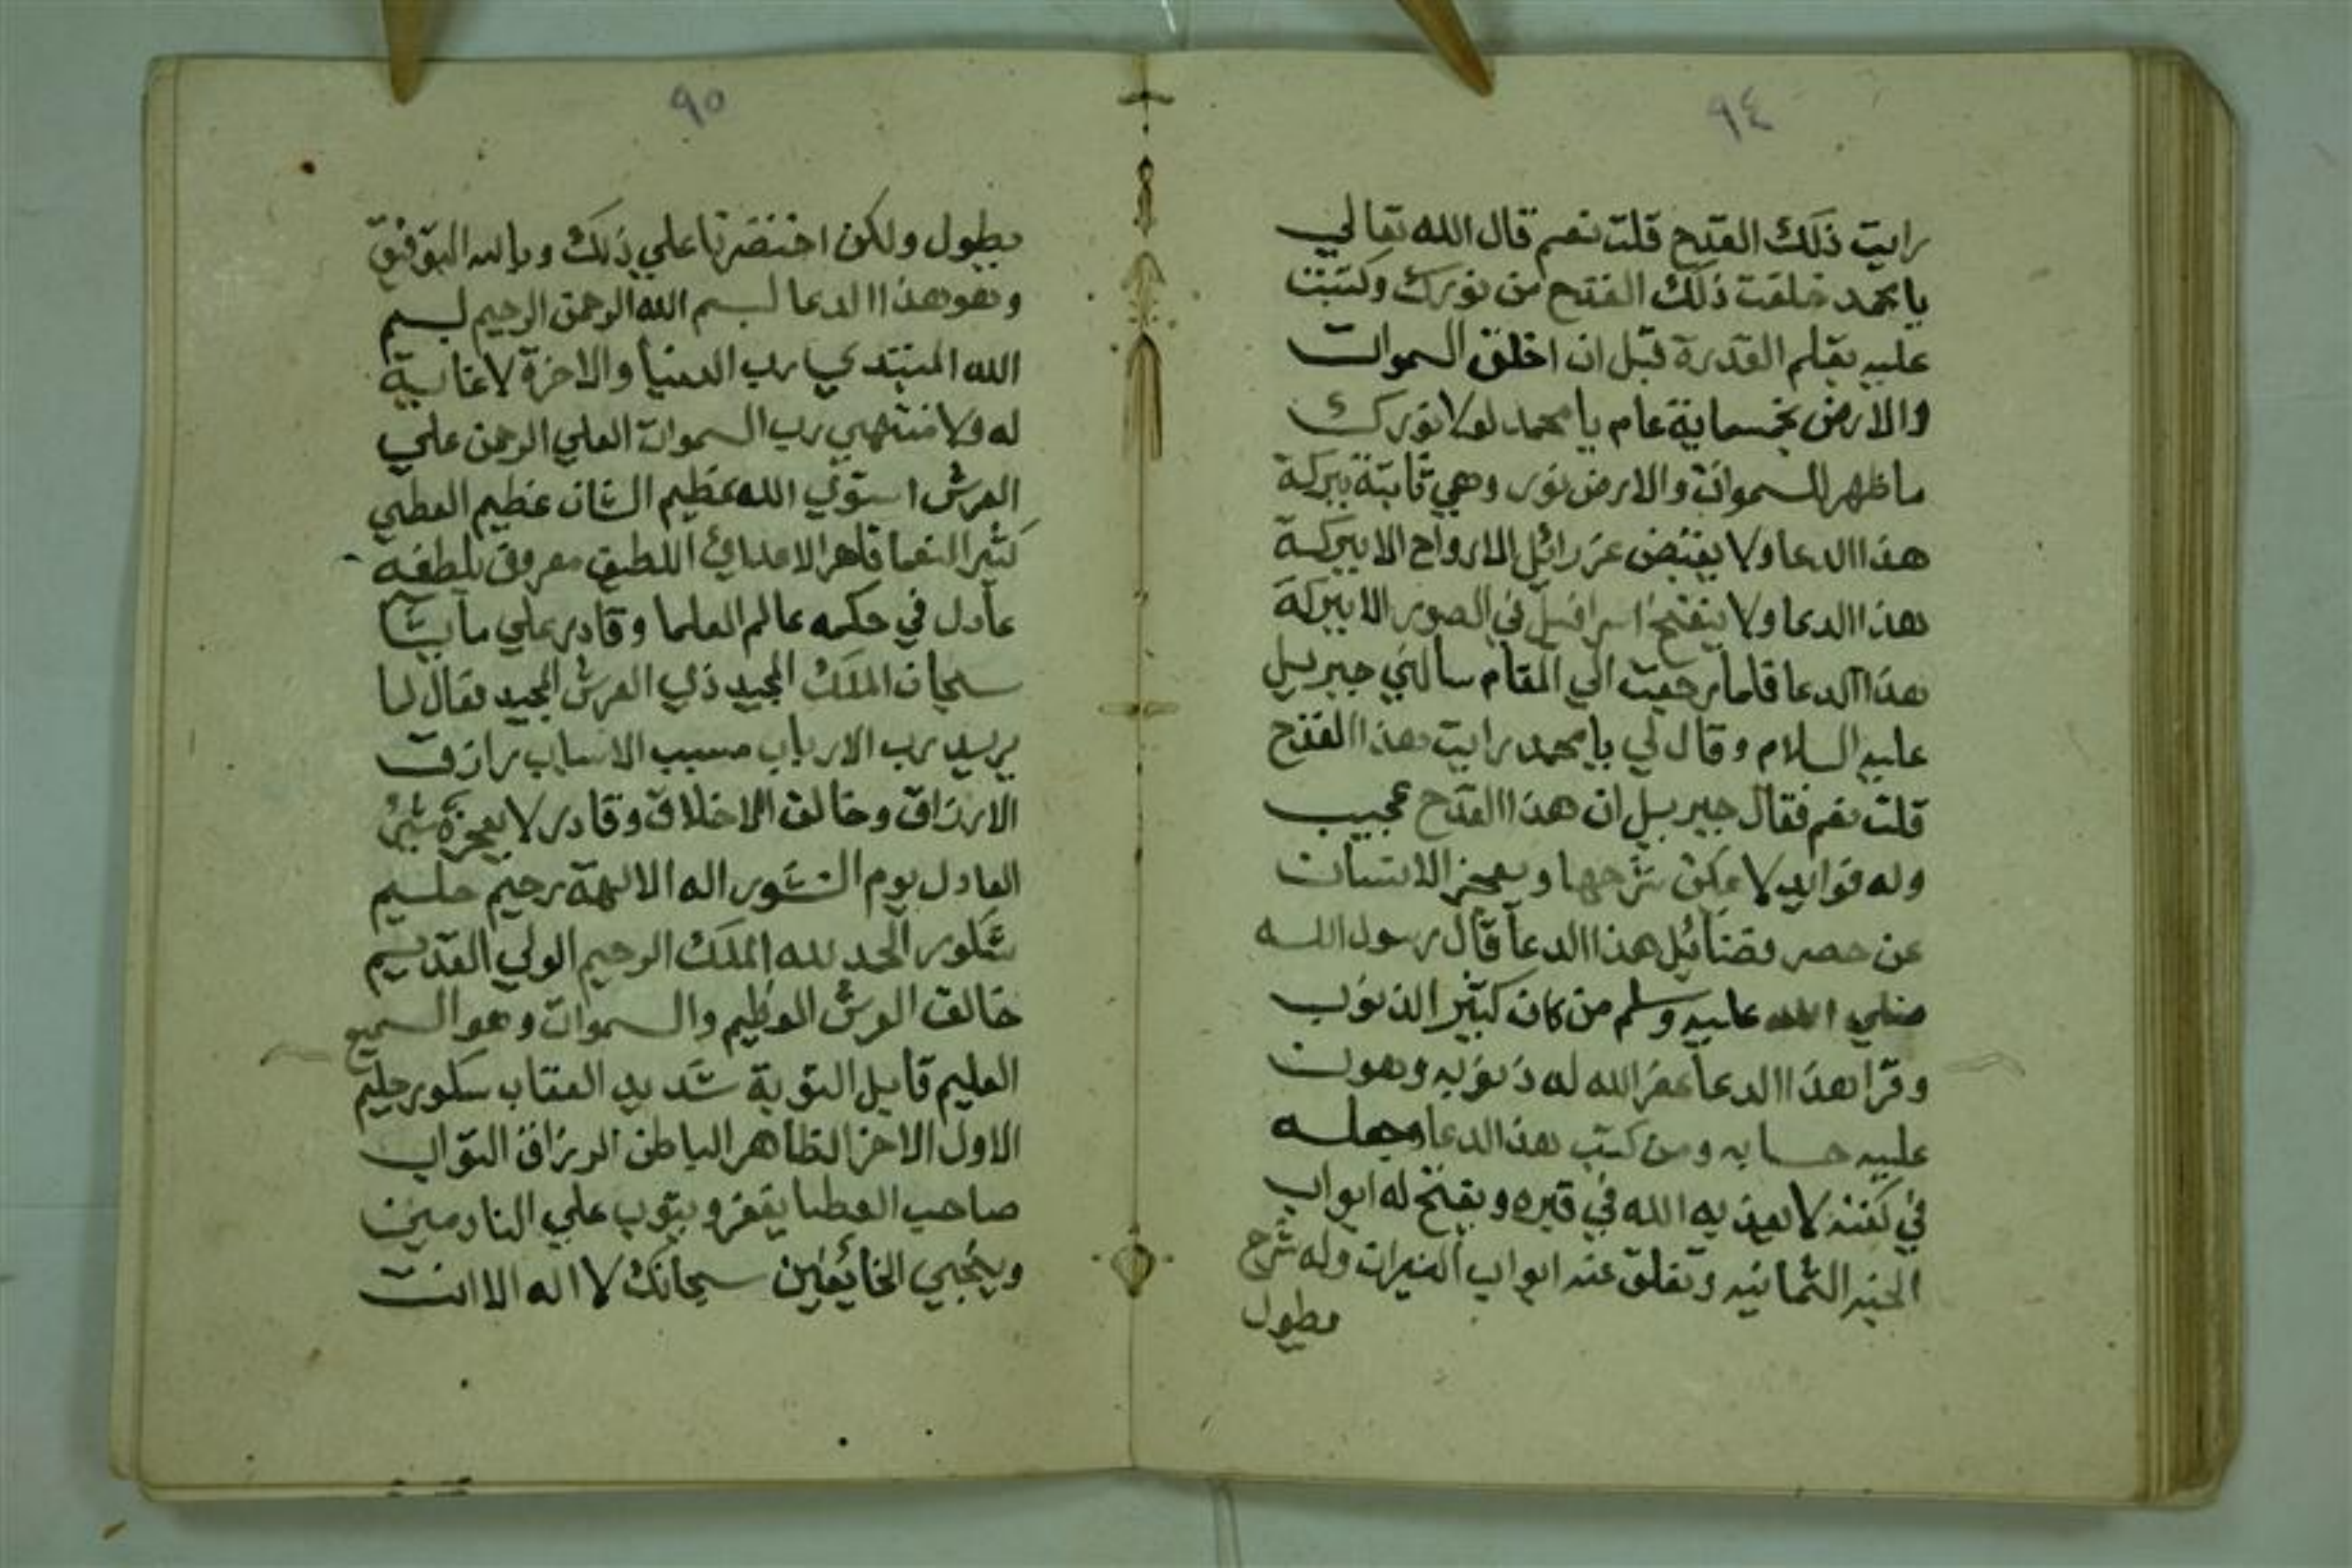 ٩٤
رايت ذلك القدح قلت نعم قال الله تعالي
يا محمد خلقت ذلك القدح من نورك وكتبت
عليه بقلم القدرة قبل ان اخلق السموات
والارض بخمسماية عام يا محمد لولا نورك
ما ظهر السموات والارض نور وهي ثابتة ببركة
هذا الدعا ولا يقبض عزرائل الارواح الا ببركة
هذا الدعا ولا ينفخ اسرافيل في الصور الا ببركة
هذا الدعا فلما رجعت الي المقام سالني جبريل
عليه السلام وقال لي يا محمد رايت هذا القدح
قلت نعم فقال جبريل ان هذا القدح عجيب
وله فوايد لا يمكن شرحها ويعجز الانسان
عن حصر فضائل هذا الدعا قال رسول الله
صلي الله عليه وسلم من كان كثير الذنوب
وقرا هذا الدعا غفر الله له ذنوبه وهون
عليه حسابه ومن كتب هذا الدعا وجعله
في كفنه لا يعذبه الله في قبره ويفتح له ابواب
الجنه الثمانيه وتغلق عنه ابواب النيران وله شرح
مطول
٩٥
يطول ولكن اختصرنا علي ذلك وبالله التوفيق
وهو هذا الدعا بسم الله الرحمن الرحيم بسم
الله المبتدي رب الدنيا والاخرة لا غاية
له ولا منتهي رب السموات العلي الرحمن علي
العرش استوي الله عظيم الشان عظيم العطي
كثير النعما قاهر الاعدائ اللطيف معروف بلطفه
عادل في حكمه عالم العلما وقادر علي ما يشا
سبحان الملك المجيد ذي العرش المجيد فعال لما
يريد رب الارباب مسبب الاسباب رازق
الارزاق وخالق الاخلاق وقادر لا يعجزه شئ
العادل يوم النشور اله الالهة رحيم حليم
شكور الحمد لله الملك الرحيم الولي القديم
خالق العرش العظيم والسموات وهو السميع
العليم قابل التوبة شديد العقاب شكور حليم
الاول الاخر الظاهر الباطن الرزاق التواب
صاحب العطايا يغفر ويتوب علي النادمين
وينجي الخائفين سبحانك لا اله الا انت